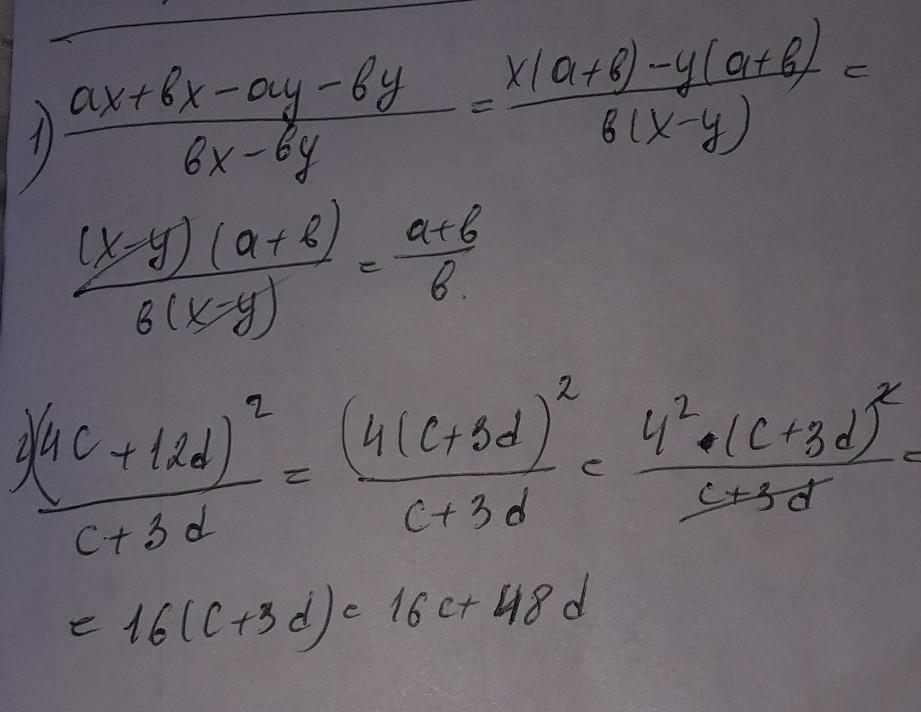 1) (ax+вx-ay-вy)/(вx-вy) = (x(a+в)-y(a+в))/(в(x-y)) =
((x-y)(a+в))/(в(x-y)) = (a+в)/в.
2) (4c+12d)²/(c+3d) = (4(c+3d)²/(c+3d) = 4²•(c+3d)²/(c+3d) =
= 16(c+3d) = 16c+48d